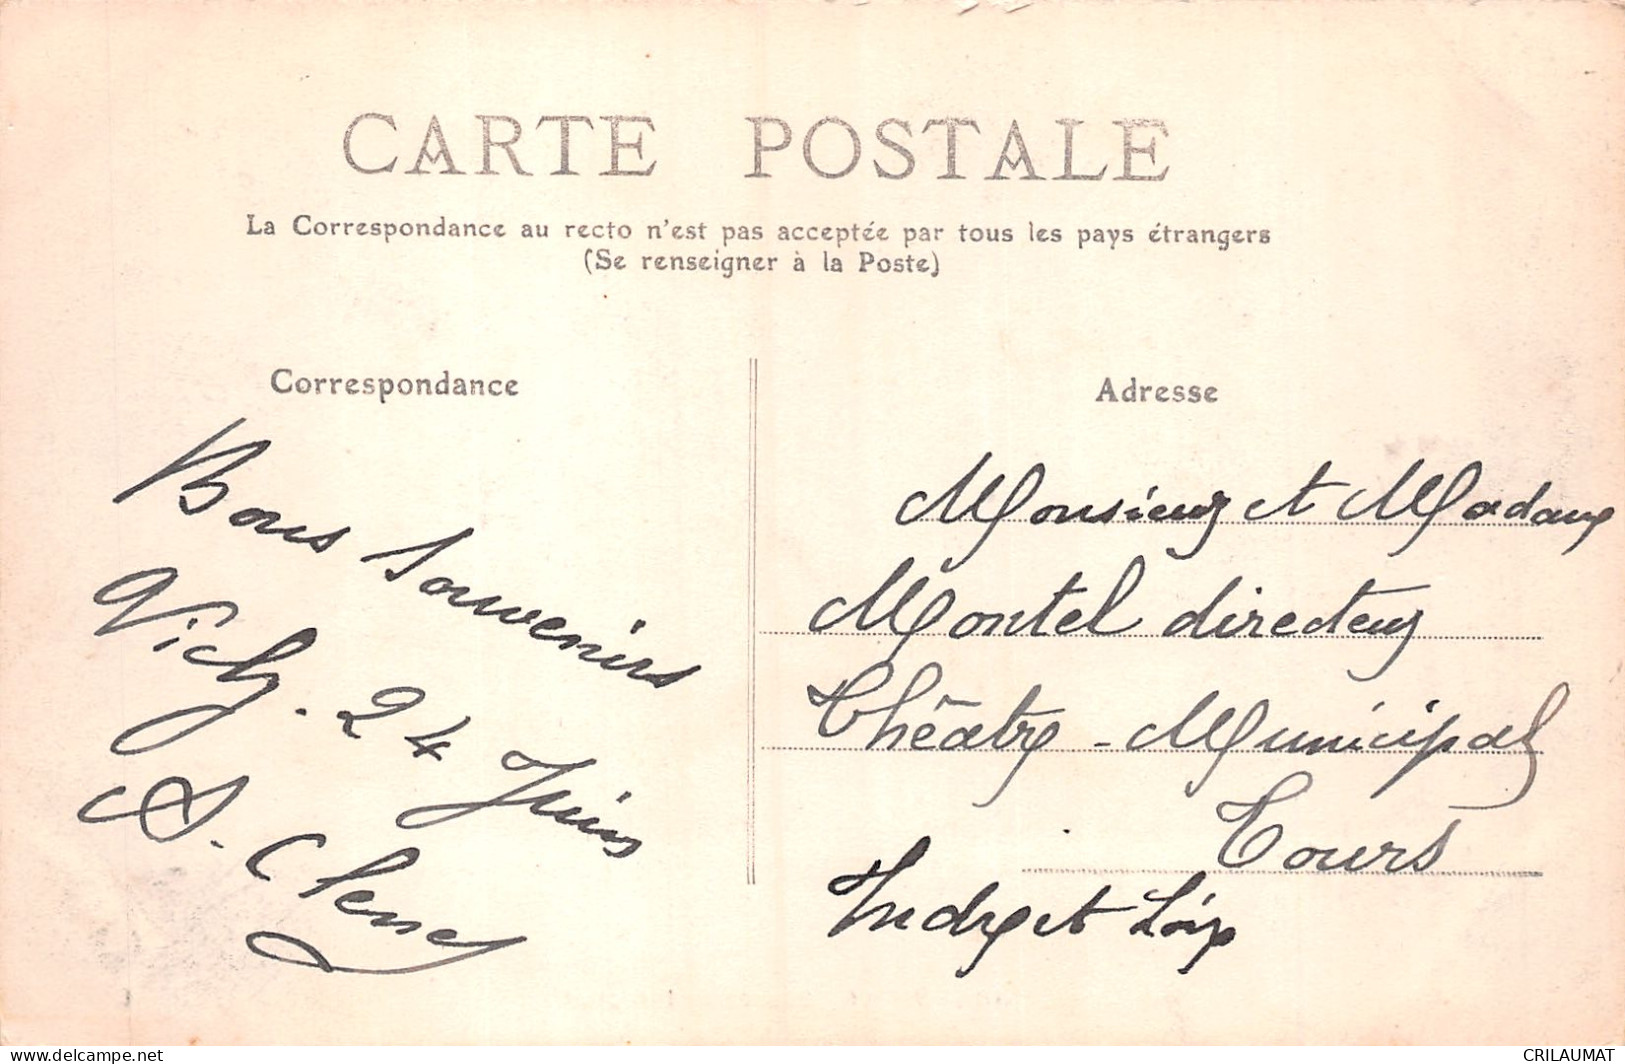 CARTE POSTALE
La Correspondance au recto n'est pas acceptée par tous les pays étrangers
(Se renseigner à la Poste)
Correspondance
Bons souvenirs
Vichy. 24 Juin
Adresse
Monsieur et Madame
Montel directeur
Théâtre - Municipal
Tours
Indre et Loire
www.delcampe.net
CRILAUMAT